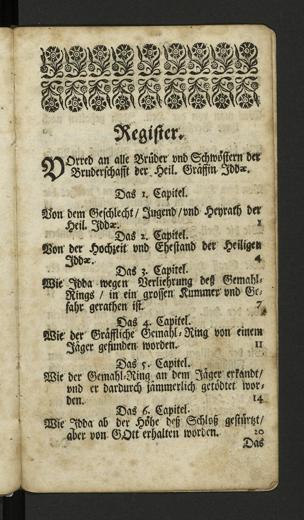 Register.
VOrred an alle Brüder vnd Schwöstern der
Bruderschafft der Heil. Gräffin Iddæ.
Das 1. Capitel.
Von dem Geschlecht / Jugend / vnd Heyrath der
Heil. Iddæ. 1
Das 2. Capitel.
Von der Hochzeit vnd Ehestand der Heiligen
Iddæ. 4
Das 3. Capitel.
Wie Idda wegen Verliehrung deß Gemahl-
Rings / in ein grossen Kummer vnd Ge-
fahr gerathen ist. 7
Das 4. Capitel.
Wie der Gräffliche Gemahl-Ring von einem
Jäger gefunden worden. 11
Das 5. Capitel.
Wie der Gemahl-Ring an dem Jäger erkandt /
vnd er dardurch jämmerlich getödtet wor-
den. 14
Das 6. Capitel.
Wie Idda ab der Höhe deß Schloß gestürtzt /
aber von GOtt erhalten worden. 20
Das